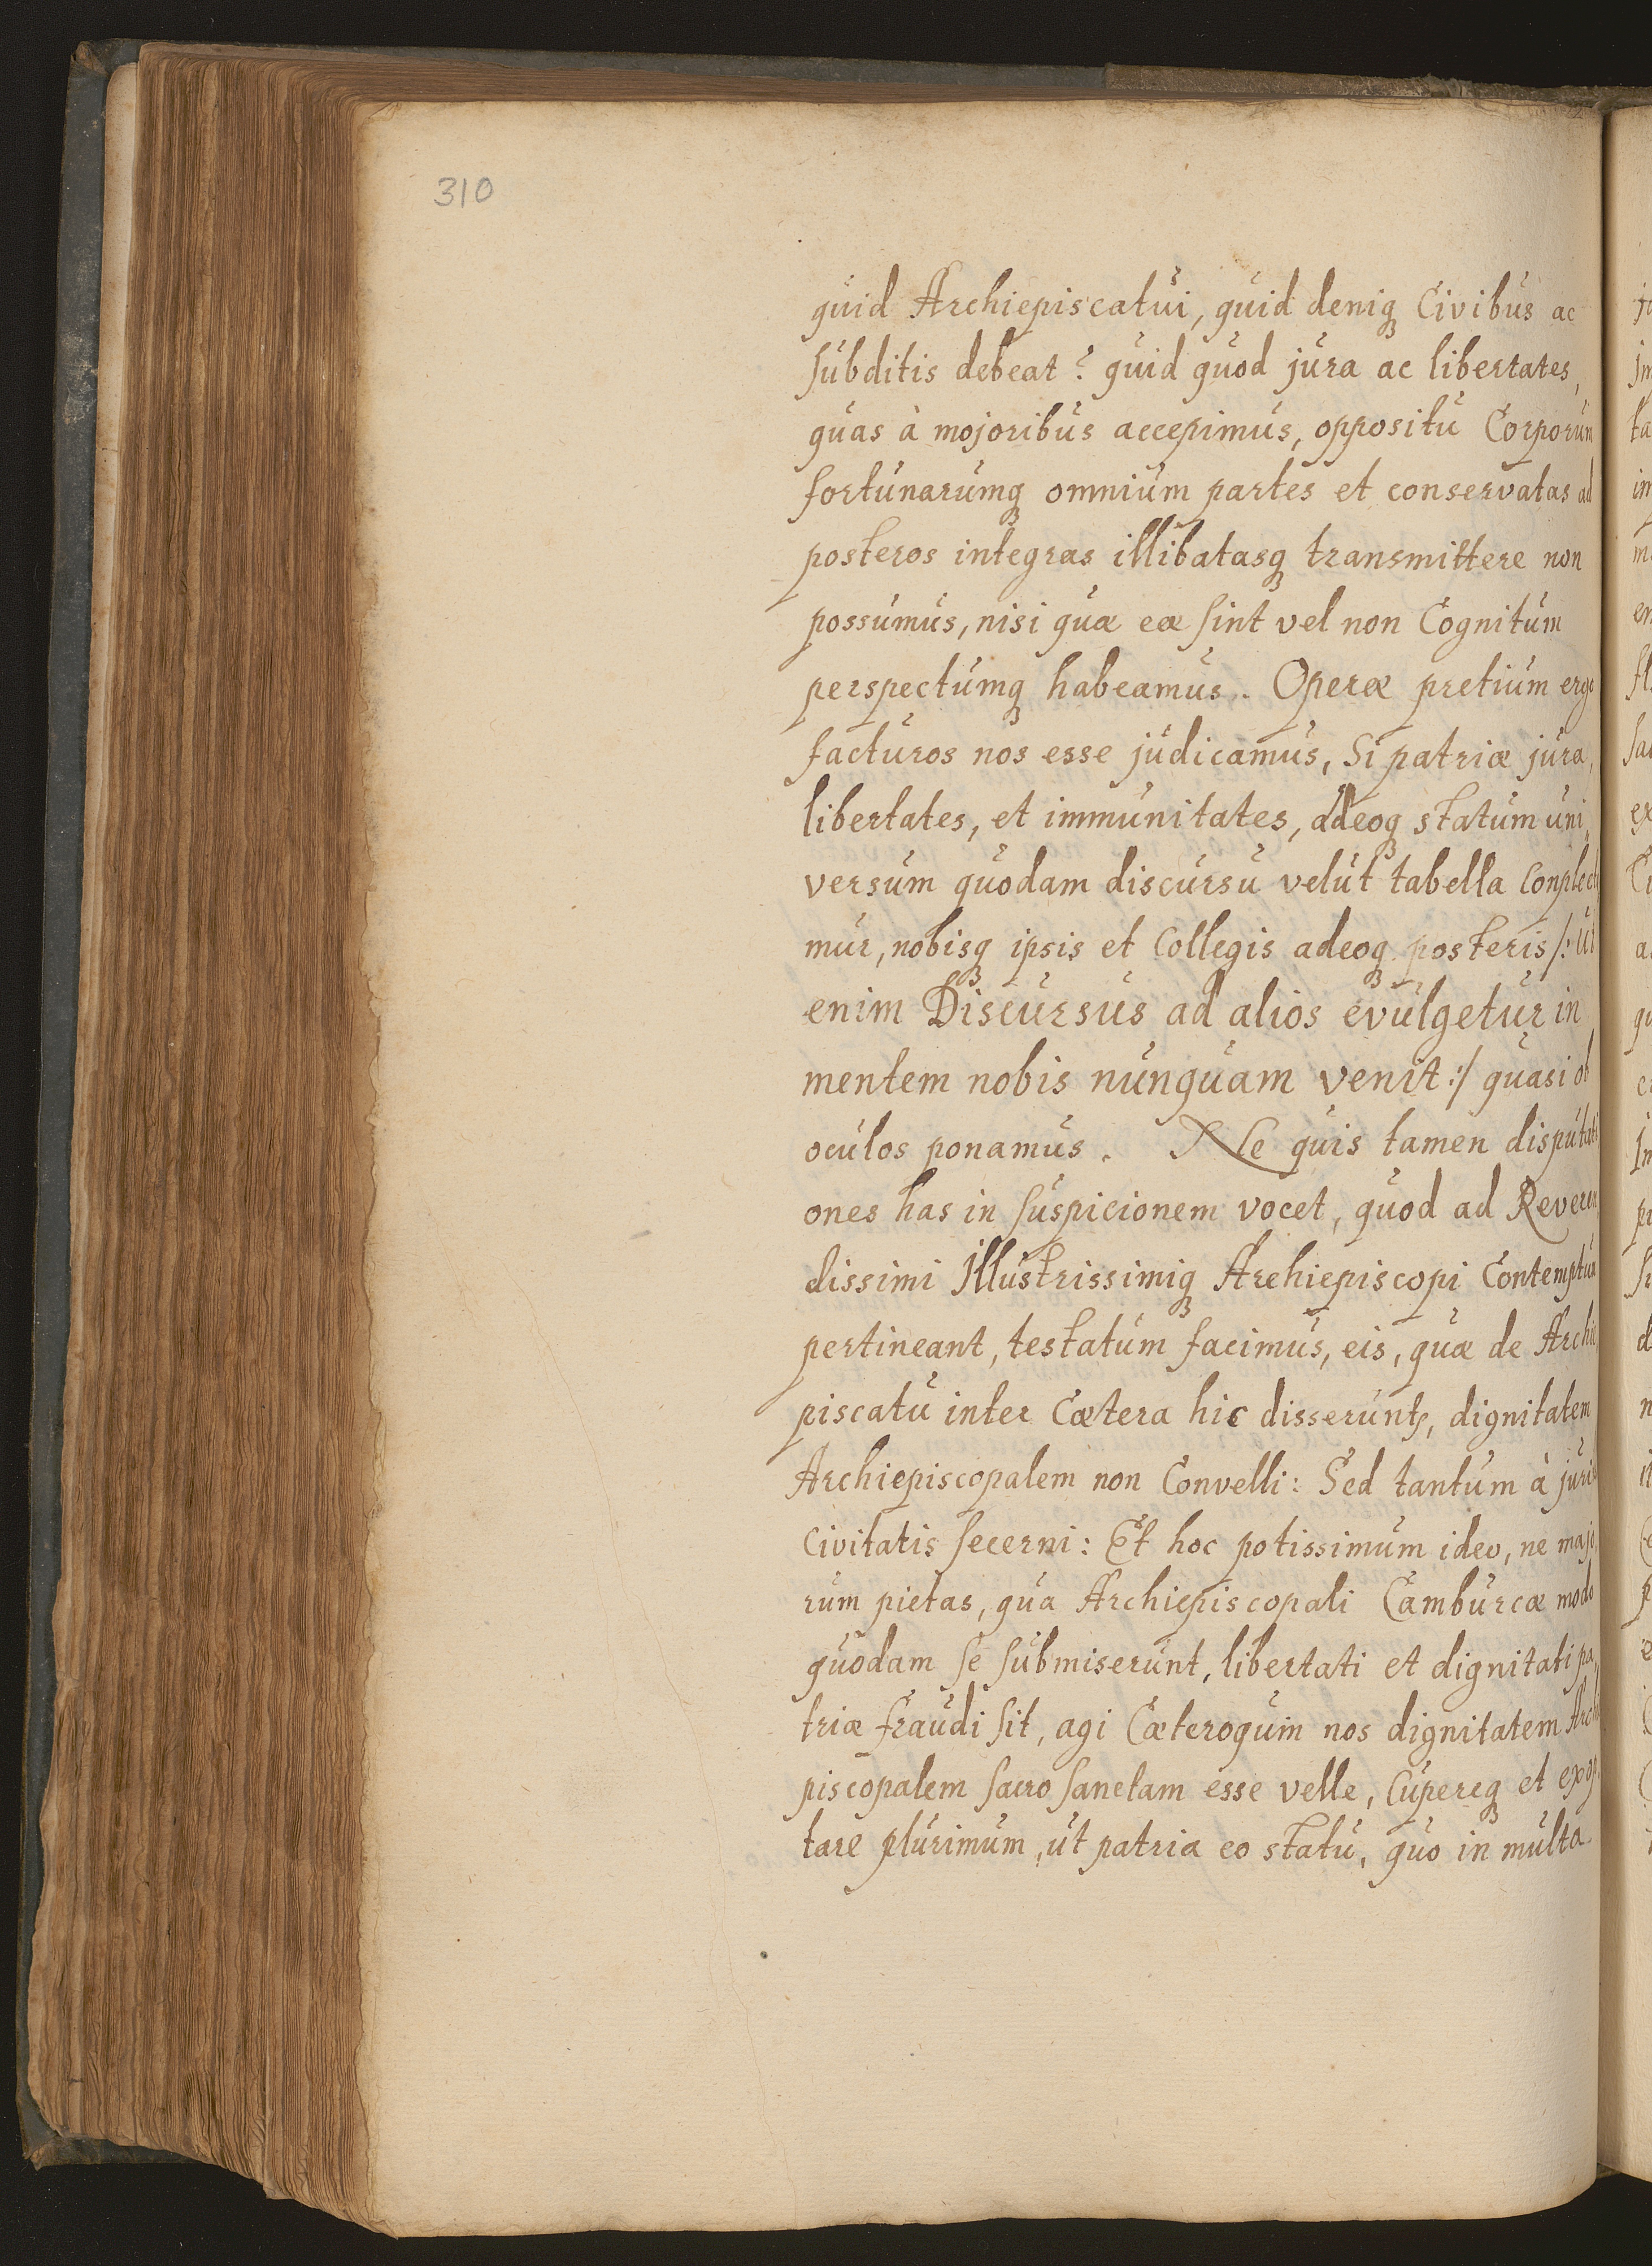 310
quid Archiepiscatui, quid deniq Civibus ac
subditis debeat? quid quod jura ac libertates,
quas à mojoribus accepimus, oppositu Corporum
fortunarumq omnium partes et conservatas ad
posteros integras illibatasq transmittere non
possumus, nisi quæ eæ sint vel non Cognitum
perspectumq habeamus. Operæ pretium ergo
facturos nos esse judicamus, Si patriæ jura,
libertates, et immunitates, adeoq statum uni,
versum quodam discursu velut tabella Conplecti
mur, nobisq ipsis et Collegis adeoq posteris /: Ut
enim Discursus ad alios evulgetur in
mentem nobis nunquam venit :/ quasi ob
oculos ponamus. Ne quis tamen disputati
ones has in suspicionem vocet, quod ad Reveren
dissimi Illustrissimiq Archiepiscopi Contemptum
pertineant, testatum facimus, eis, quæ de Archie
piscatu inter Cætera hic disserunt, dignitatem
Archiepiscopalem non Convelli: Sed tantum à juri
Civitatis secerni: Et hoc potissimum ideo, ne majo,
rum pietas, qua Archiepiscopali Camburcæ modo
quodam se submiserunt, libertati et dignitati pa,
triæ fraudi sit, agi Cæteroquin nos dignitatem Archi
piscopalem sacro sanctam esse velle, Cupereq et exop
tare plurimum, ut patria eo statu, quo in multa